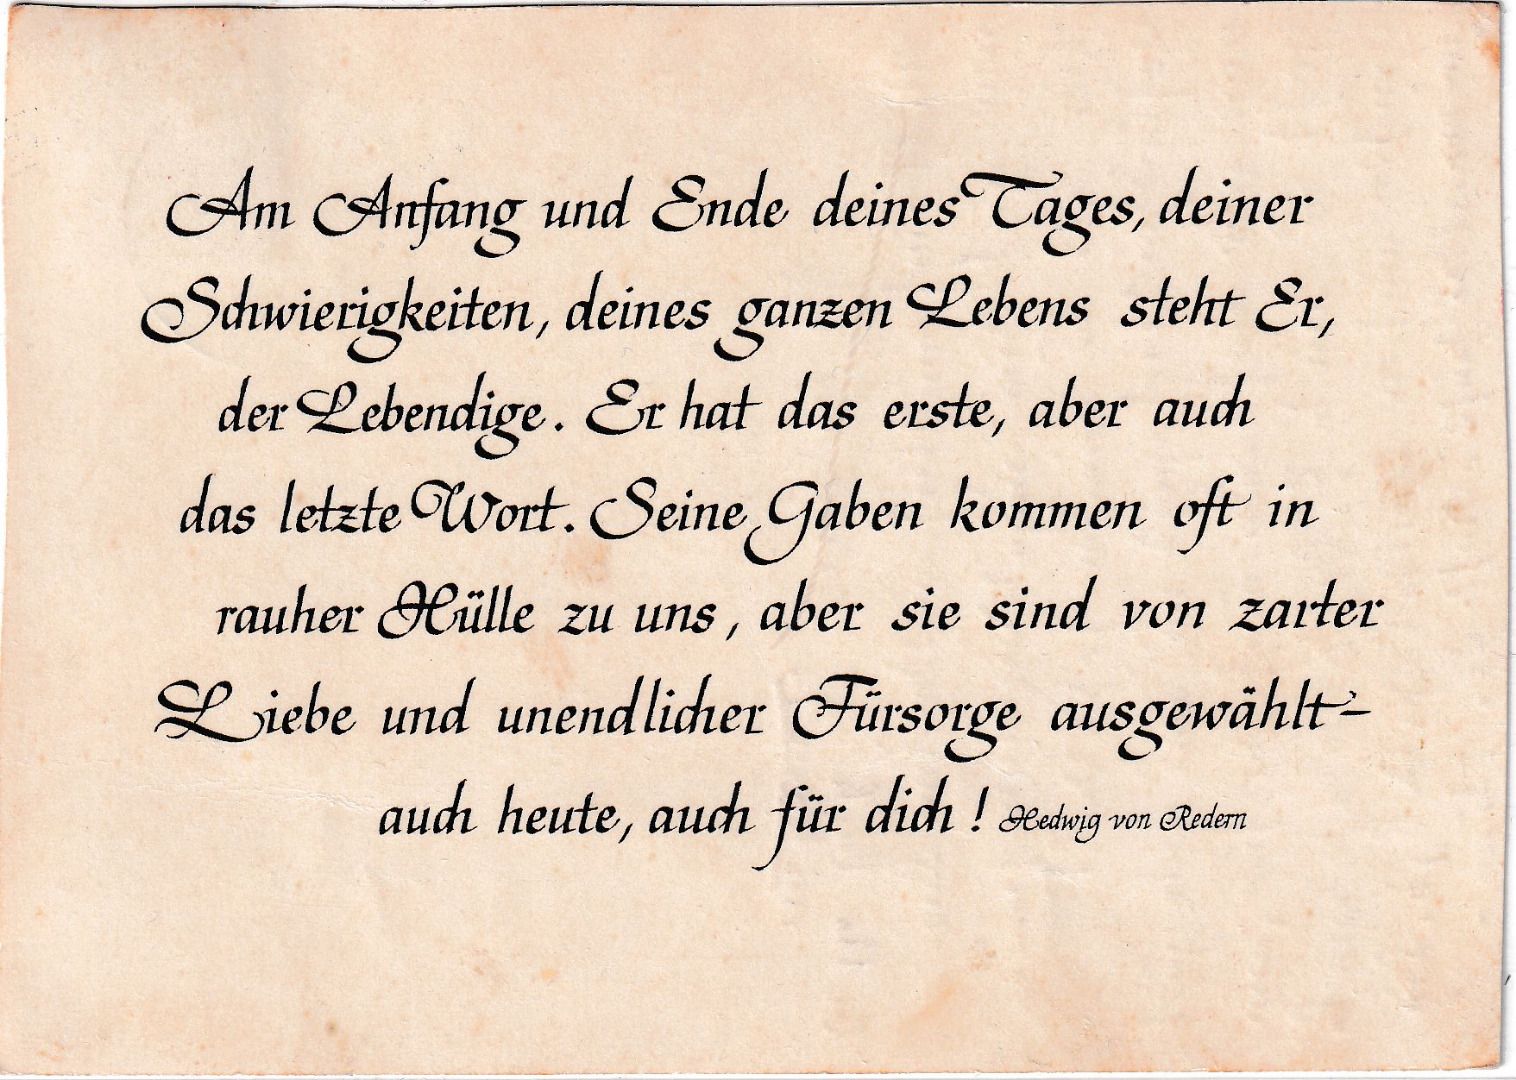 Am Anfang und Ende deines Tages, deiner
Schwierigkeiten, deines ganzen Lebens steht Er,
der Lebendige. Er hat das erste, aber auch
das letzte Wort. Seine Gaben kommen oft in
rauher Hülle zu uns, aber sie sind von zarter
Liebe und unendlicher Fürsorge ausgewählt–
auch heute, auch für dich! Hedwig von Redern